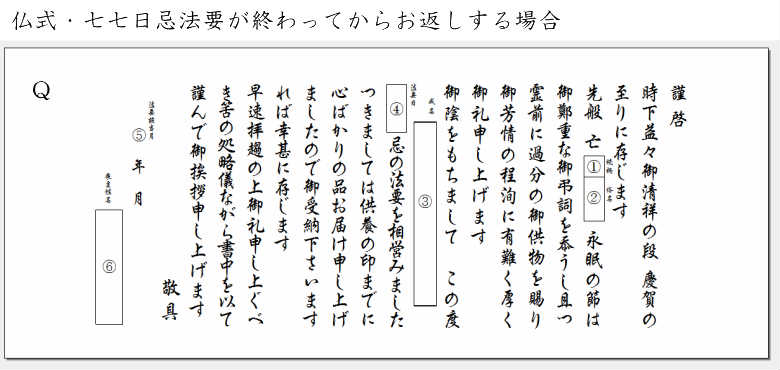 仏式・七七日忌法要が終わってからお返しする場合
Q
謹啓
時下益々御清祥の段 慶賀の
至りに存じます
先般 亡 ① ② 永眠の節は
続柄 俗名
御鄭重な御弔詞を忝うし且つ
霊前に過分の御供物を賜り
御芳情の程洵に有難く厚く
御礼申し上げます
御陰をもちまして この度
戒名
③
法要日
④ 忌の法要を相営みました
つきましては供養の印までに
心ばかりの品お届け申し上げ
ましたので御受納下さいます
れば幸甚に存じます
早速拝趨の上御礼申し上ぐべ
き筈の処略儀ながら書中を以て
謹んで御挨拶申し上げます
敬具
法要該当月
⑤ 年 月
喪主姓名
⑥